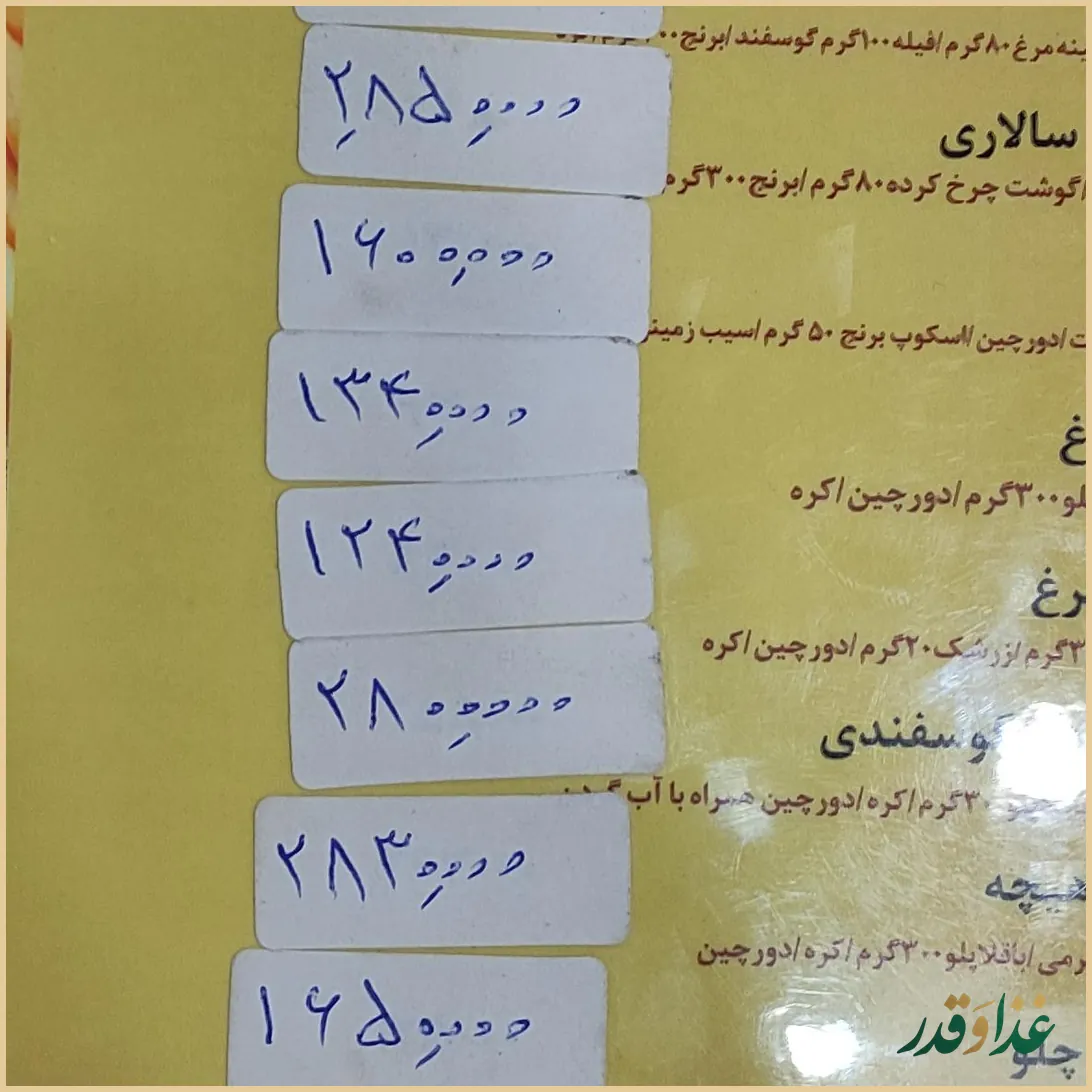 مرغ۸۰گرم/فیله۱۰۰گرم گوسفند/برنج
۲,۸۵۰,۰۰۰
سالاری
گوشت چرخ کرده۸۰گرم/برنج۳۰۰گرم
۱۶۰۰,۰۰۰
/دورچین/اسکوپ برنج ۵۰ گرم/سیب زمینی
۱۳۴۰,۰۰۰
۳۰۰گرم/دورچین/کره
۱۲۴۰,۰۰۰
گرم/زرشک۲۰گرم/دورچین/کره
۲۸۰۰,۰۰۰
گوسفندی
گرم/کره/دورچین همراه با آب
۲۸۳۰,۰۰۰
/باقلاپلو۳۰۰گرم/کره/دورچین
۱۶۵۰,۰۰۰
چلو
غذا و قدر